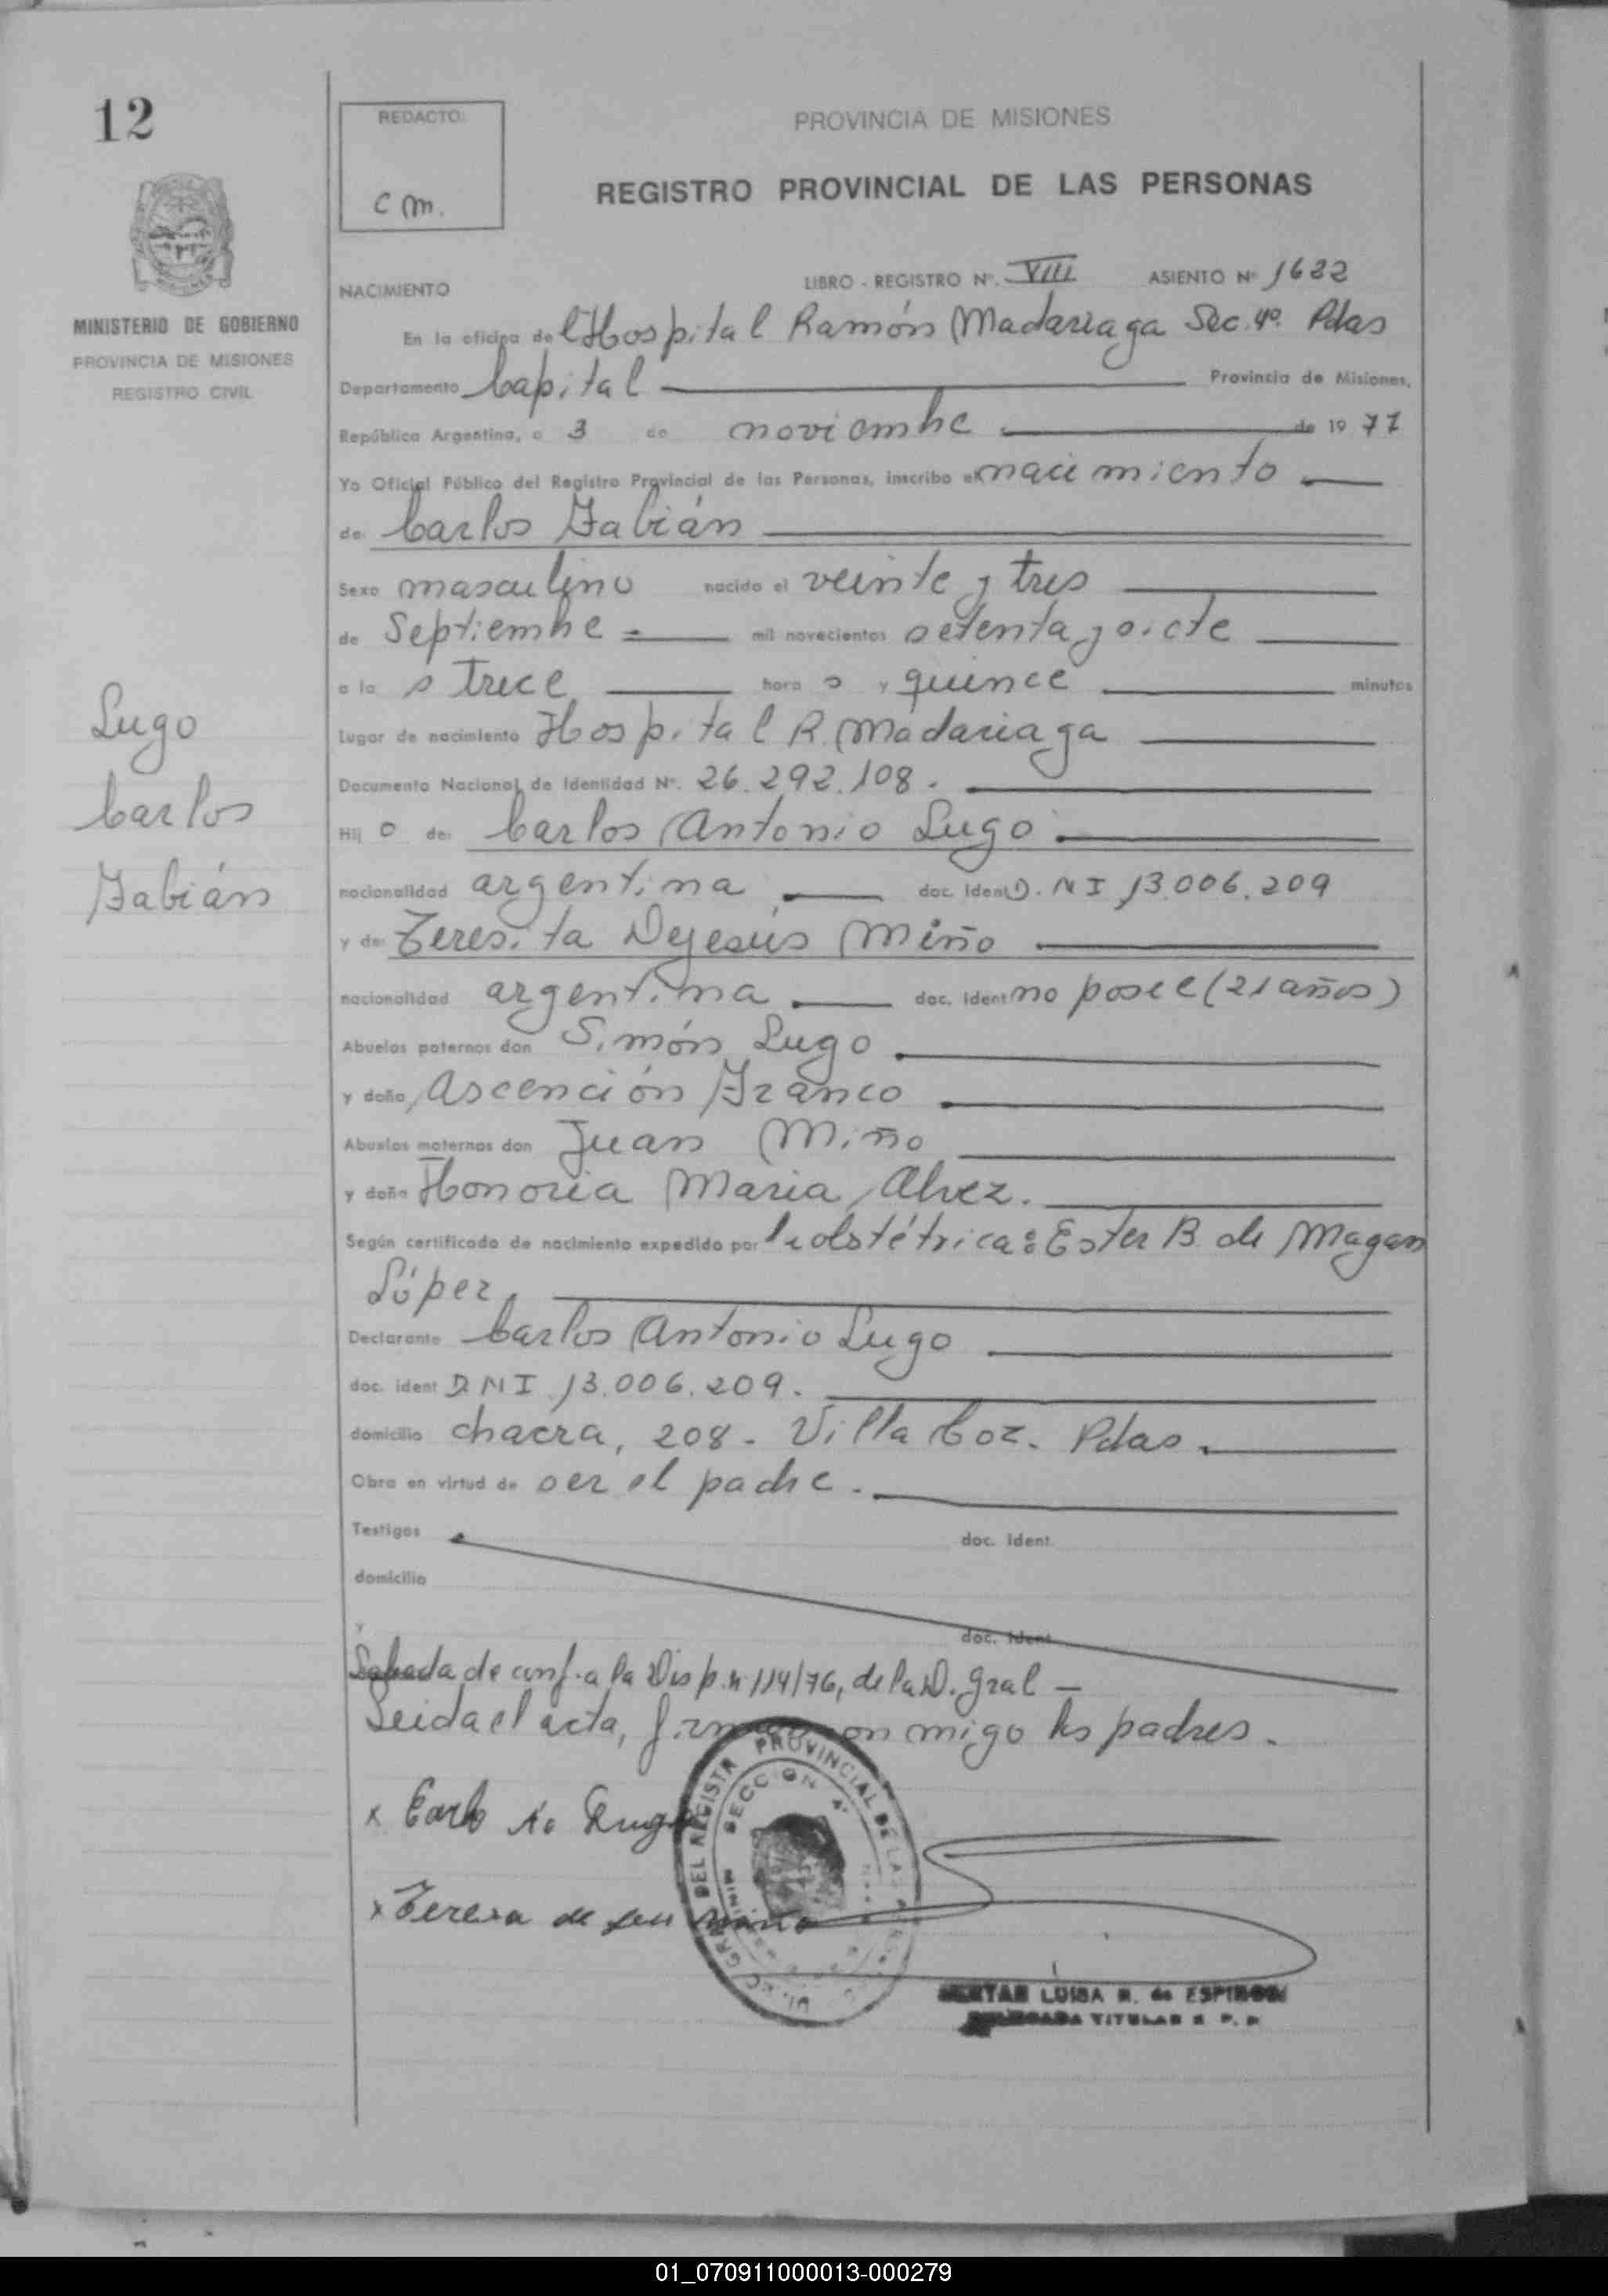 12
REDACTO:
C M.
PROVINCIA DE MISIONES
REGISTRO PROVINCIAL DE LAS PERSONAS
MINISTERIO DE GOBIERNO
PROVINCIA DE MISIONES
REGISTRO CIVIL
Lugo
Carlos
Fabián
NACIMIENTO LIBRO - REGISTRO Nº. VIII ASIENTO Nº 1622
En la oficina de l Hospital Ramón Madariaga Sec. 4º. Pdas
Departamento Capital Provincia de Misiones,
República Argentina, a 3 de noviembre de 19 77
Yo Oficial Público del Registro Provincial de las Personas, inscribo el nacimiento
de: Carlos Fabián
Sexo masculino nacido el veinte y tres
de Septiembre mil novecientos setenta y siete
a la s trece hora s y quince minutos
Lugar de nacimiento Hospital R. Madariaga
Documento Nacional de Identidad Nº. 26.292.108.
Hij o de: Carlos Antonio Lugo
nacionalidad argentina doc. Ident D.N I 13.006.209
y de: Teresita Dejesús Miño
nacionalidad argentina doc. ident no posee (21 años)
Abuelos paternos don Simón Lugo
y doña Ascención Franco
Abuelos maternos don Juan Miño
y doña Honoria Maria Alvez.
Según certificado de nacimiento expedido por la obstétrica: Ester B. de Magan
López
Declarante Carlos Antonio Lugo
doc. ident D.N I 13.006.209.
domicilio chacra, 208 - Villa Coz. Pdas.
Obra en virtud de ser el padre.
Testigos doc. ident.
domicilio
y doc. ident.
de conf. a la Disp. n 114/76, de la D. Gral -
Leida el acta, firman conmigo los padres.
x Carlo Lugo
x Teresa de Miño
PROVINCIAL DE LAS
SECCION 4ª
LUISA de ESPINOSA
TITULAR
01_070911000013-000279